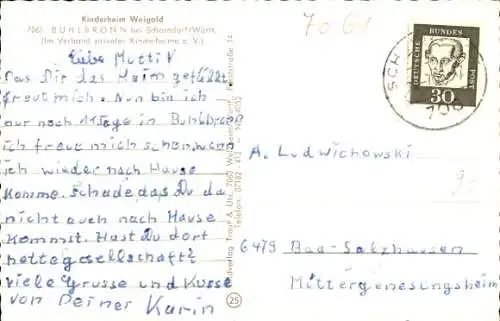 Kinderheim Weigold
7061 BUHLBRONN bei Schorndorf/Württ.
(Im Verband privater Kinderheime e. V.)
Liebe Mutti
Das Dir das Heim gefällt
freut mich. Nun bin ich
nur noch 11 Tage in Buhlbronn
ich freue mich schon, wenn
ich wieder nach Hause
komme. Schade, das Du da
nicht auch nach Hause
kommst. Hast Du dort
nette gesellschaft?
viele Grüsse und Küsse
von Deiner Karin
70 G1
DEUTSCHE BUNDESPOST
30
A. Ludwichowski
6479 Bad-Salzhausen
Müttergenesungsheim
25